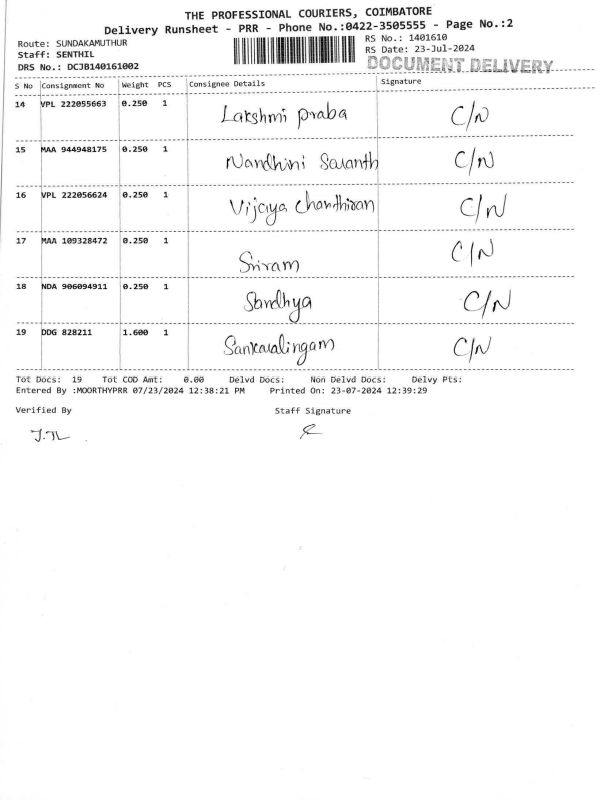 THE PROFESSIONAL COURIERS, COIMBATORE
Delivery Runsheet - PRR - Phone No.:0422-3505555 - Page No.:2
Route: SUNDAKAMUTHUR
RS No.: 1401610
Staff: SENTHIL
RS Date: 23-Jul-2024
DRS No.: DCJB140161002
DOCUMENT DELIVERY
S No Consignment No Weight PCS Consignee Details Signature
14 VPL 222055663 0.250 1 Lakshmi praba C/N
15 MAA 944948175 0.250 1 Nandhini Saranth C/N
16 VPL 222056624 0.250 1 Vijaya Chanthiran C/N
17 MAA 109328472 0.250 1 Sriram C/N
18 NDA 906094911 0.250 1 Sandhya C/N
19 DDG 828211 1.600 1 Sankaralingam C/N
Tot Docs: 19 Tot COD Amt: 0.00 Delvd Docs: Non Delvd Docs: Delvy Pts:
Entered By :MOORTHYPRR 07/23/2024 12:38:21 PM Printed On: 23-07-2024 12:39:29
Verified By Staff Signature